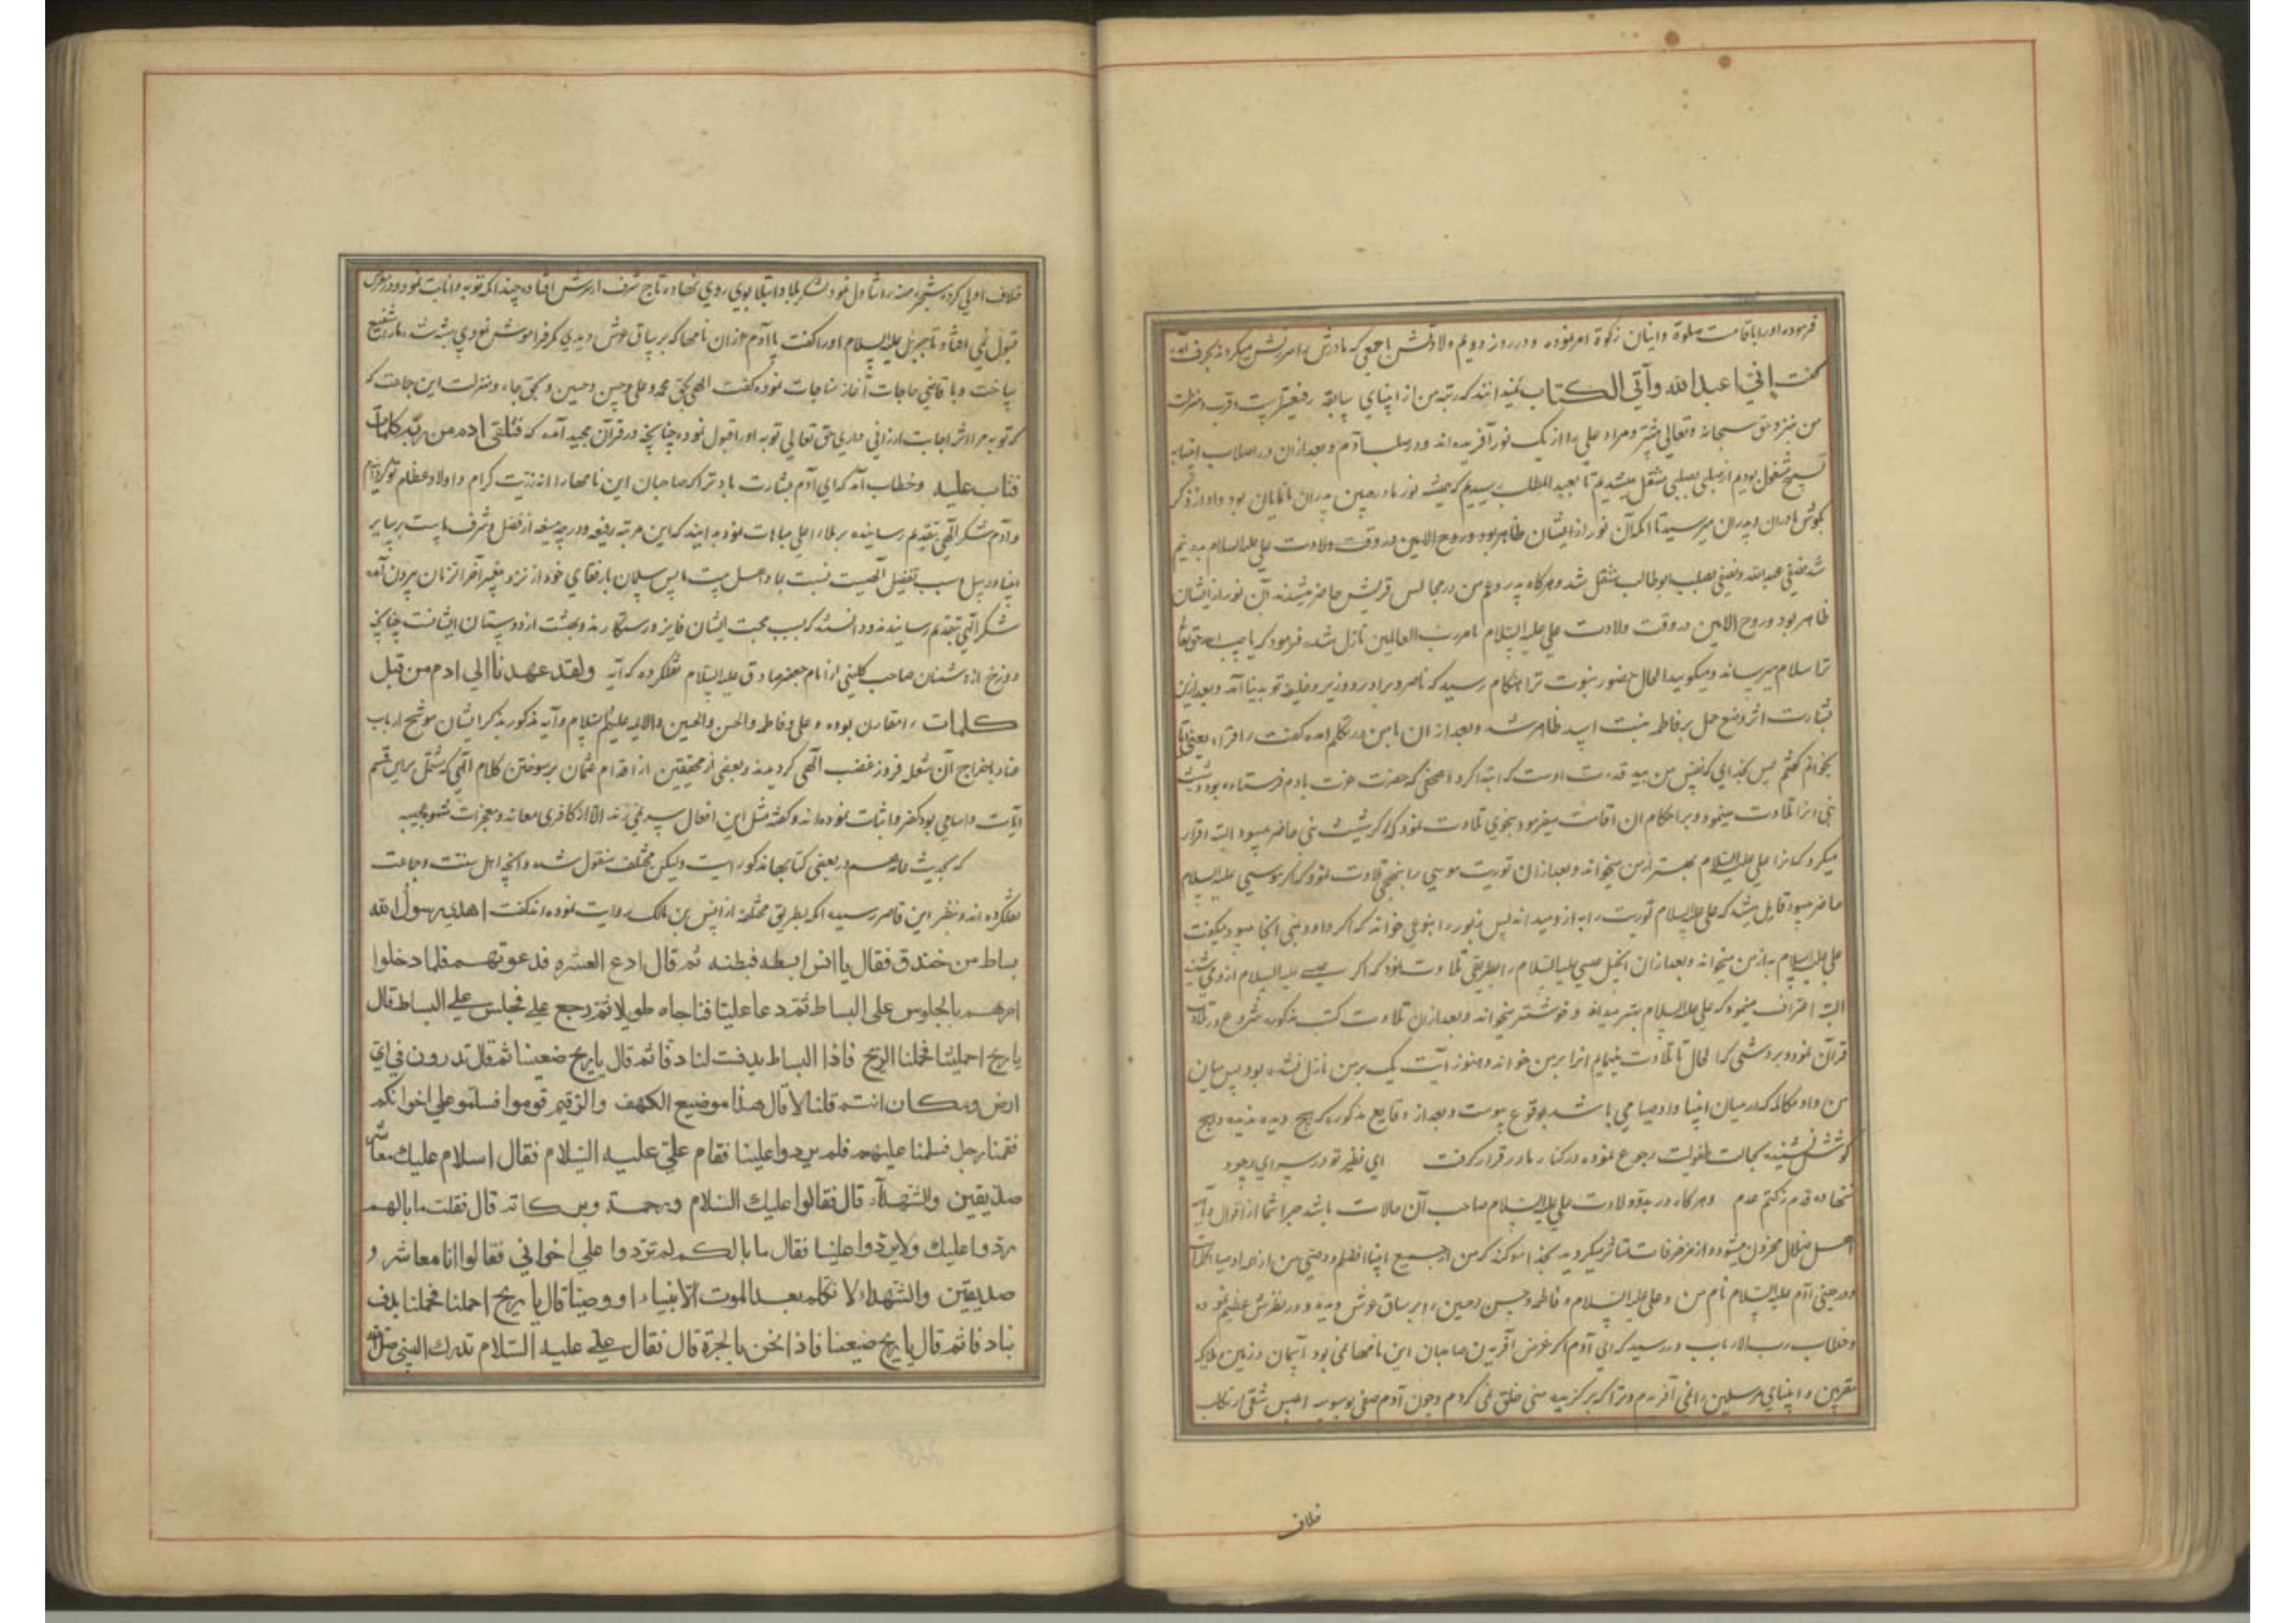 فرموده اورا باقامت صلوة و اتیان زکوة امر نموده و در روز دویم ولادتش باجمعی که مادرش را سرزنش میکردند بحرف آمده
گفت إني عبد الله وآتي الكتاب نمیدانند که رتبه من از انبیای سابقه رفیعتر است و قرب و منزلت
من نزد حق سبحانه وتعالی بیشتر و مرا و علی را از یک نور آفریده‌اند و در صلب آدم و بعد از آن در اصلاب انبیا به
تسبیح مشغول بودیم از صلبی بصلبی منتقل میشدیم تا بعبد المطلب رسیدیم که همیشه نور ما در جبین پدران ما نمایان بود و آواز ذکر
بگوش مادران و پدران میرسید تا آنکه آن نور از ایشان ظاهر بود و روح الامین در وقت ولادت علی علیه السلام بدو نیم
شد نصفی بعبد الله و نصفی بصلب ابوطالب منتقل شد و هرکاه پدر و عم من در مجالس قریش حاضر میشدند آن نور از ایشان
ظاهر بود و روح الامین در وقت ولادت علی علیه السلام بامر رب العالمین نازل شده فرمود که یا حبیب الله حق تعالی
ترا سلام میرساند و میکوید الحال حضور نبوت ترا هنگام رسید که ناصر و برادر و وزیر و خلیفه تو بدنیا آمد و بعد ازین
بشارت اثر وضع حمل بر فاطمه بنت اسد ظاهر شد و بعد از ان با من در تکلم آمده گفت ءاقراء یعنی آیا
بخوانم گفتم پس بخدایی که نفس من بید قدرت اوست که ابتدا کرد از صحفی که حضرت عزت بادم فرستاده بود و شیث
نبی انرا تلاوت مینمود و بر احکام ان اقامت میفرمود بنحوی تلاوت نمود که اگر شیث نبی حاضر میبود البته اقرار
میکرد که انرا علی علیه السلام بهتر از من میخواند و بعد ازان توریت موسی را بنهجی تلاوت نمود که اگر موسی علیه السلام
حاضر میبود قایل میشد که علی علیه السلام توریت را به ازو میداند پس زبور را بنوعی خواند که اگر داود نبی انجا میبود میکفت
علی علیه السلام به از من میخواند و بعد ازان انجیل عیسی علیه السلام را بطریقی تلاوت نمود که اگر عیسی علیه السلام ازو می شنید
البته اعتراف مینمود که علی علیه السلام بهتر میداند و خوشتر میخواند و بعد ازان تلاوت کتب مذکوره شروع در تلاوت
قرآن نمود و بروشی که الحال تا تلاوت مینمایم انرا بر من خواند و هنوز آیت یک بر من نازل نشده بود پس میان
من و او مکالمه که در میان انبیا و اوصیا می باشد بوقوع پیوست و بعد از وقایع مذکوره که هیچ دیده ندیده و هیچ
گوش نشنیده بحالت طفولیت رجوع نموده در کنار مادر قرار گرفت ای نظیر تو در سرای وجود
ننهاده قدم ز کتم عدم و هرکاه در بدو ولادت علی علیه السلام صاحب آن حالات باشد چرا شما از اقوال
اهل ضلال محزون میشوید و از مزخرفات متاثر میکردید بخدا سوگند که من از جمیع انبیا افضلم و وصی من از همه اوصیا
و در حینی آدم علیه السلام نام من و علی علیه السلام و فاطمه و حسن و حسین را بر ساق عرش دیده و در نظرش عظیم نموده
و خطاب رب الارباب در رسید که ای آدم اگر غرض آفریدن صاحبان این نامها نمی بود آسمان و زمین و ملایکه
مقربین و انبیای مرسلین را نمی آفریدم و ترا که برگزیده منی خلق نمی کردم و چون آدم صفی بوسوسه ابلیس شقی ارتکاب
خلاف
خلاف اولی کرده شجره منهیه را تناول نمود لشکر بلا و ابتلا بوی روی نهاده تاج شرف از سرش افتاده چندانکه توبه و انابت نمود و در معرض
قبول نمی افتاد تا جبرئیل علیه السلام اورا گفت یا آدم از ان نامها که بر ساق عرش دیدی مگر فراموش نمودی بشتاب و ما را شفیع
بساخت و با قاضی حاجات آغاز مناجات نموده گفت الهی بحق محمد و علی و حسن و حسین و بحق جاه و منزلت این جماعت که
که توبه مرا اثر اجابت ارزانی داری حق تعالی توبه اورا قبول نموده چنانچه در قرآن مجید آمده که فتلقی ادم من ربه كلمات
فتاب عليه و خطاب آمد که ای آدم بشارت باد ترا که صاحبان این نامها را از ذریت کرام و اولاد عظام تو گردانیدم
و آدم شکر الهی بتقدیم رسانیده بر ملاء اعلی مباهات نمود بدانید که این مرتبه رفیعه و درجه منیعه از فضل و شرف ماست بر سایر
انبیا و رسل و سبب تفضیل الهیست نسبت بما و اهل بیت ما پس سلمان با رفقای خود از نزد پیغمبر آخر الزمان بیرون آمده
شکر الهی بتقدیم رسانیدند و دانستند که بسبب محبت ایشان فایز و رستگارند و بهشت از دوستان ایشانست چنانچه
دوزخ از دشمنان صاحب کلینی از امام جعفر صادق علیه السلام نقل کرده که آیه ولقد عهدنا الی ادم من قبل
كلمات را مقارن بوده و علی و فاطمه والحسن والحسین والائمه علیهم السلام و آیه مذکور بذکر ایشان موشح ارباب
عناد باخراج آن شعله فروز غضب الهی گردیدند و بعضی از محققین از اقدام عثمان بر سوختن کلام الهی که مشتمل بر این قسم
آیات و اسامی بود کفر او اثبات نموده‌اند و گفته مثل این افعال سر نمی زند الا از کافری معاند و معجزات
که بحدیث در بعضی کتابها مذکور است ولیکن مختلف منقول شده و آنچه اهل سنت و جماعت
نقل کرده اند و بنظر این قاصر رسیده آنکه بطریق مختلفه از انس بن مالک روایت نموده اند که گفت اهدی رسول الله
بساط من خندق فقال یا انس ابسطه فبسطته ثم قال ادع العشره فدعوتهم فلما دخلوا
امرهم بالجلوس علی البساط ثم دعا علیا فناجاه طویلا ثم رجع علي فجلس علي البساط قال
یا ریح احملینا فحملنا الریح فاذا البساط یدف لنا دفا ثم قال یا ریح ضعینا ثم قال تدرون في اي
ارض ومكان انتم قلنا لا قال هذا موضع الكهف والرقیم قوموا فسلموا علی اخوانکم
فقمنا رجل فسلمنا علیهم فلم یردوا علینا فقام علي علیه السلام فقال السلام علیك معاشر
صدیقین والشهداء قال فقالوا علیك السلام ورحمة وبرکاته قال فقلت ما بالهم
ردوا علیك ولا یردوا علینا فقال ما بالکم لم تردوا علي اخواني فقالوا انا معاشر
صدیقین والشهداء لا نکلم بعد الموت الا نبیاء او وصیا قال یا ریح احملنا فحملنا یدف
بنا دفا ثم قال یا ریح ضعینا فاذا نحن بالحرة قال فقال علي علیه السلام تدرك النبي صلی الله